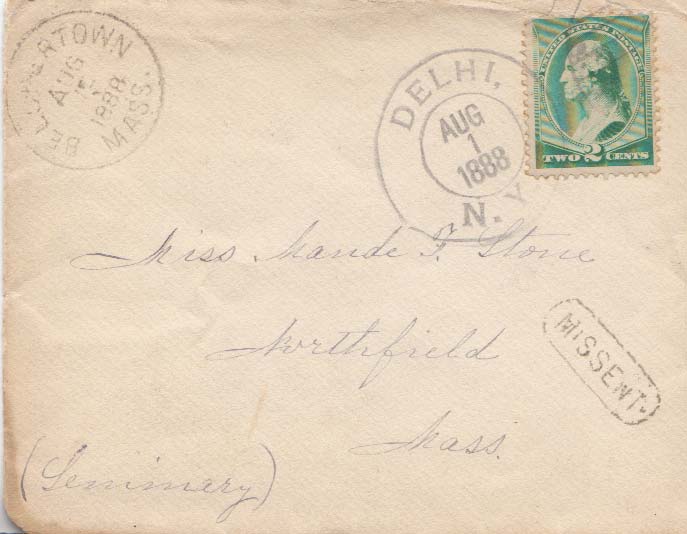 BELCHERTOWN
AUG
1888
MASS.
DELHI,
AUG
1
1888
N. Y.
UNITED STATES POSTAGE
TWO 2 CENTS
Miss Maude F. Stone
Northfield
Mass.
(Seminary)
MISSENT.